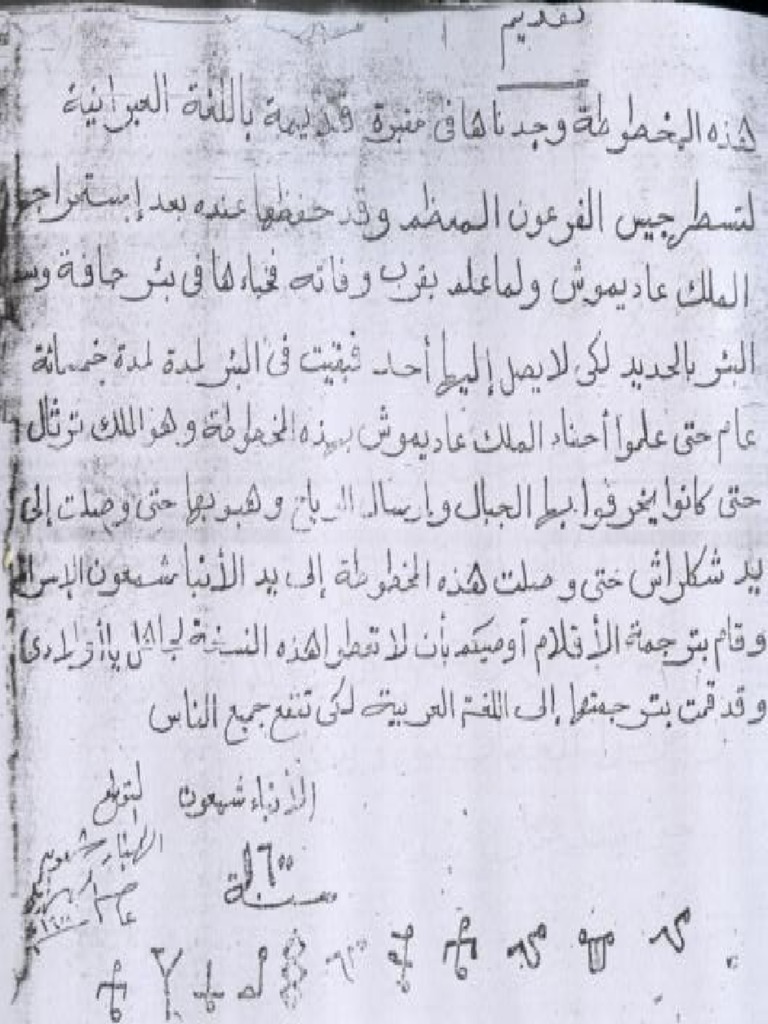 تقديم
هذه المخطوطة وجدناها فى مقبرة قديمة باللغة العبرانية
لتسطرجيس الفرعون المعظم وقد حفظها عنده بعد إستخراجها
الملك عاديموش ولما علم بقرب وفاته فخباءها فى بئر جافة وسد
البئر بالحديد لكى لا يصل إليها أحد فبقيت فى البئر لمدة لمدة خمسمائة
عام حتى علموا أحفاد الملك عاديموش بهذه المخطوطة وهو الملك توثال
حتى كانوا يخرقوا بها الجبال وبارسال الرياح وهبوبها حتى وصلت إلى
يد شكلراش حتى وصلت هذه المخطوطة إلى يد الأنبا شمعون
وقام بترجمة الأقلام أوصيكم بأن لا تعطوا هذه النسخة
وقد قمت بترجمتها إلى اللغة العربية لكى تنفع جميع الناس
الأنباء شمعون
سنة ١٦٠٠